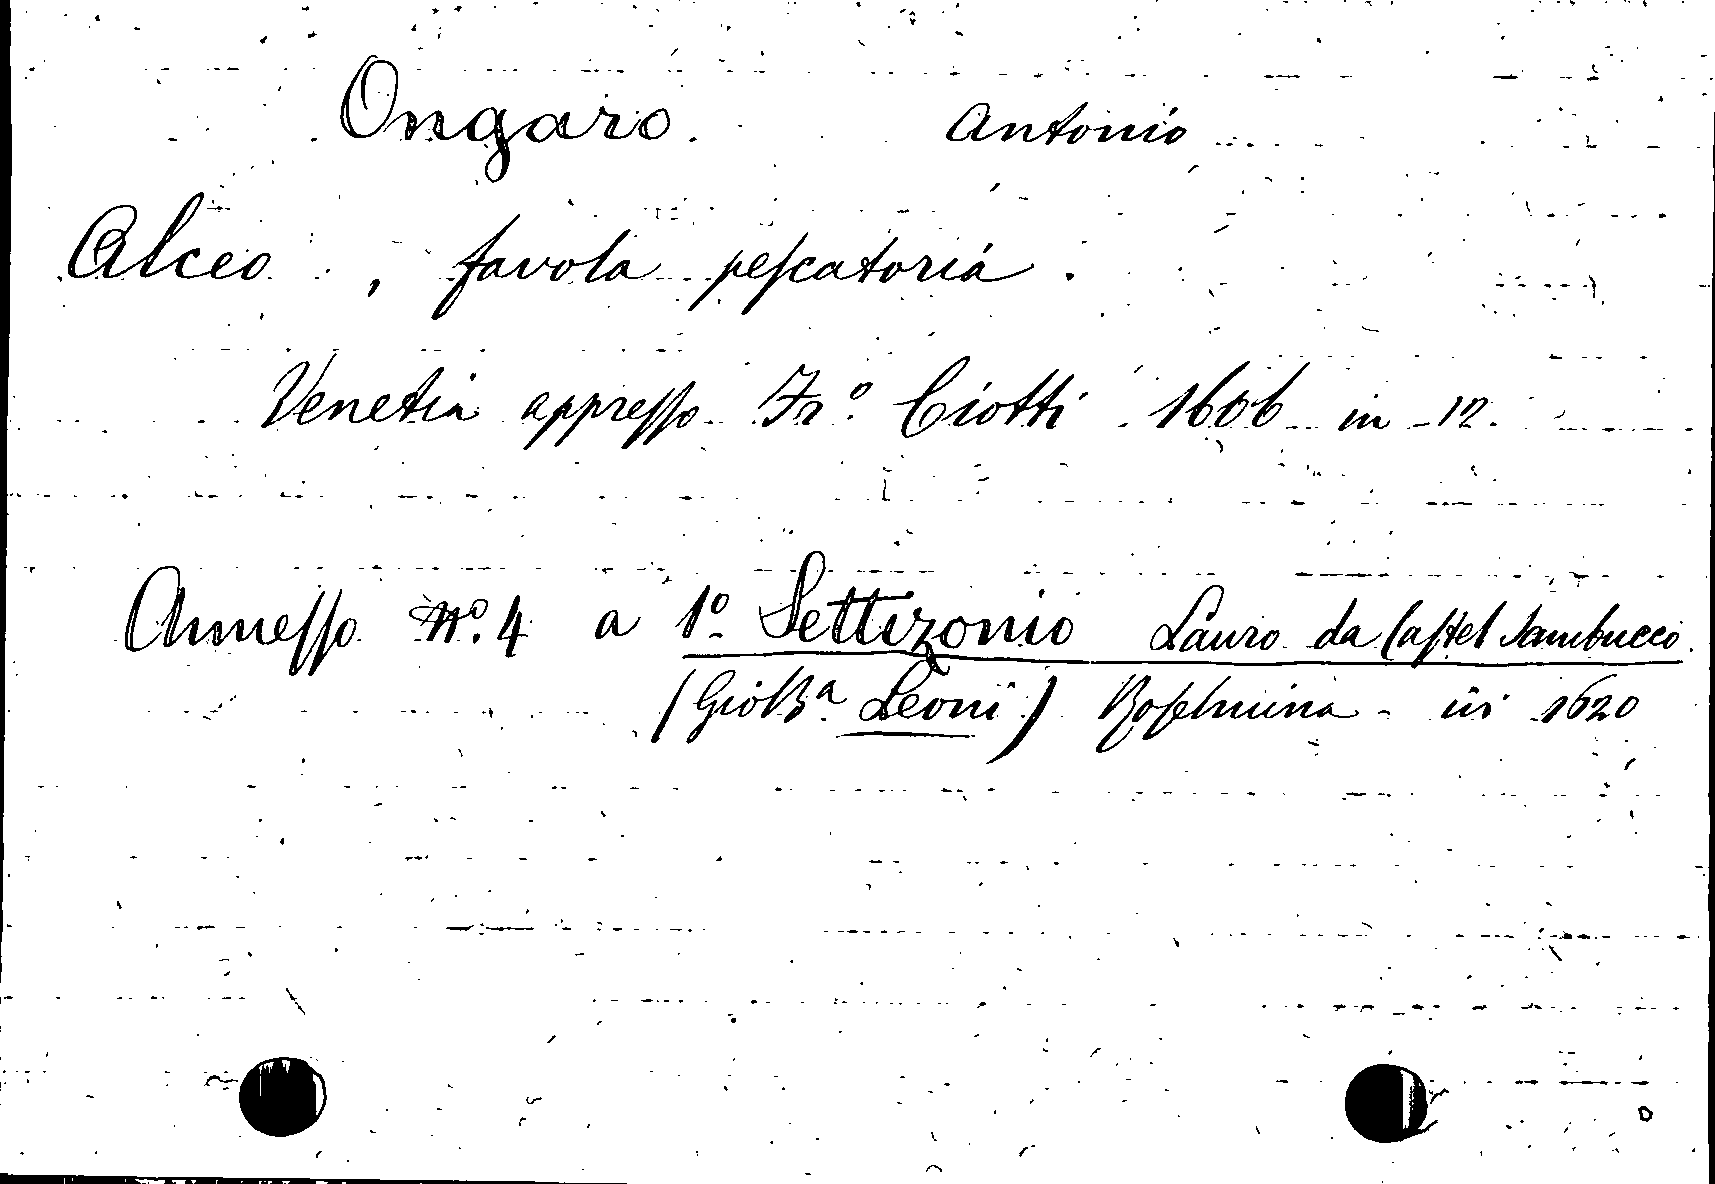 Ongaro. Antonio
Alceo, favola pescatoria.
Venetia appresso Frº. Ciotti 1606 in 12.
Annesso Nº. 4 a 1º. Settizonio Lauro da Castel Sambucco.
(Gio Bª. Leoni) Roselmina - in 1620